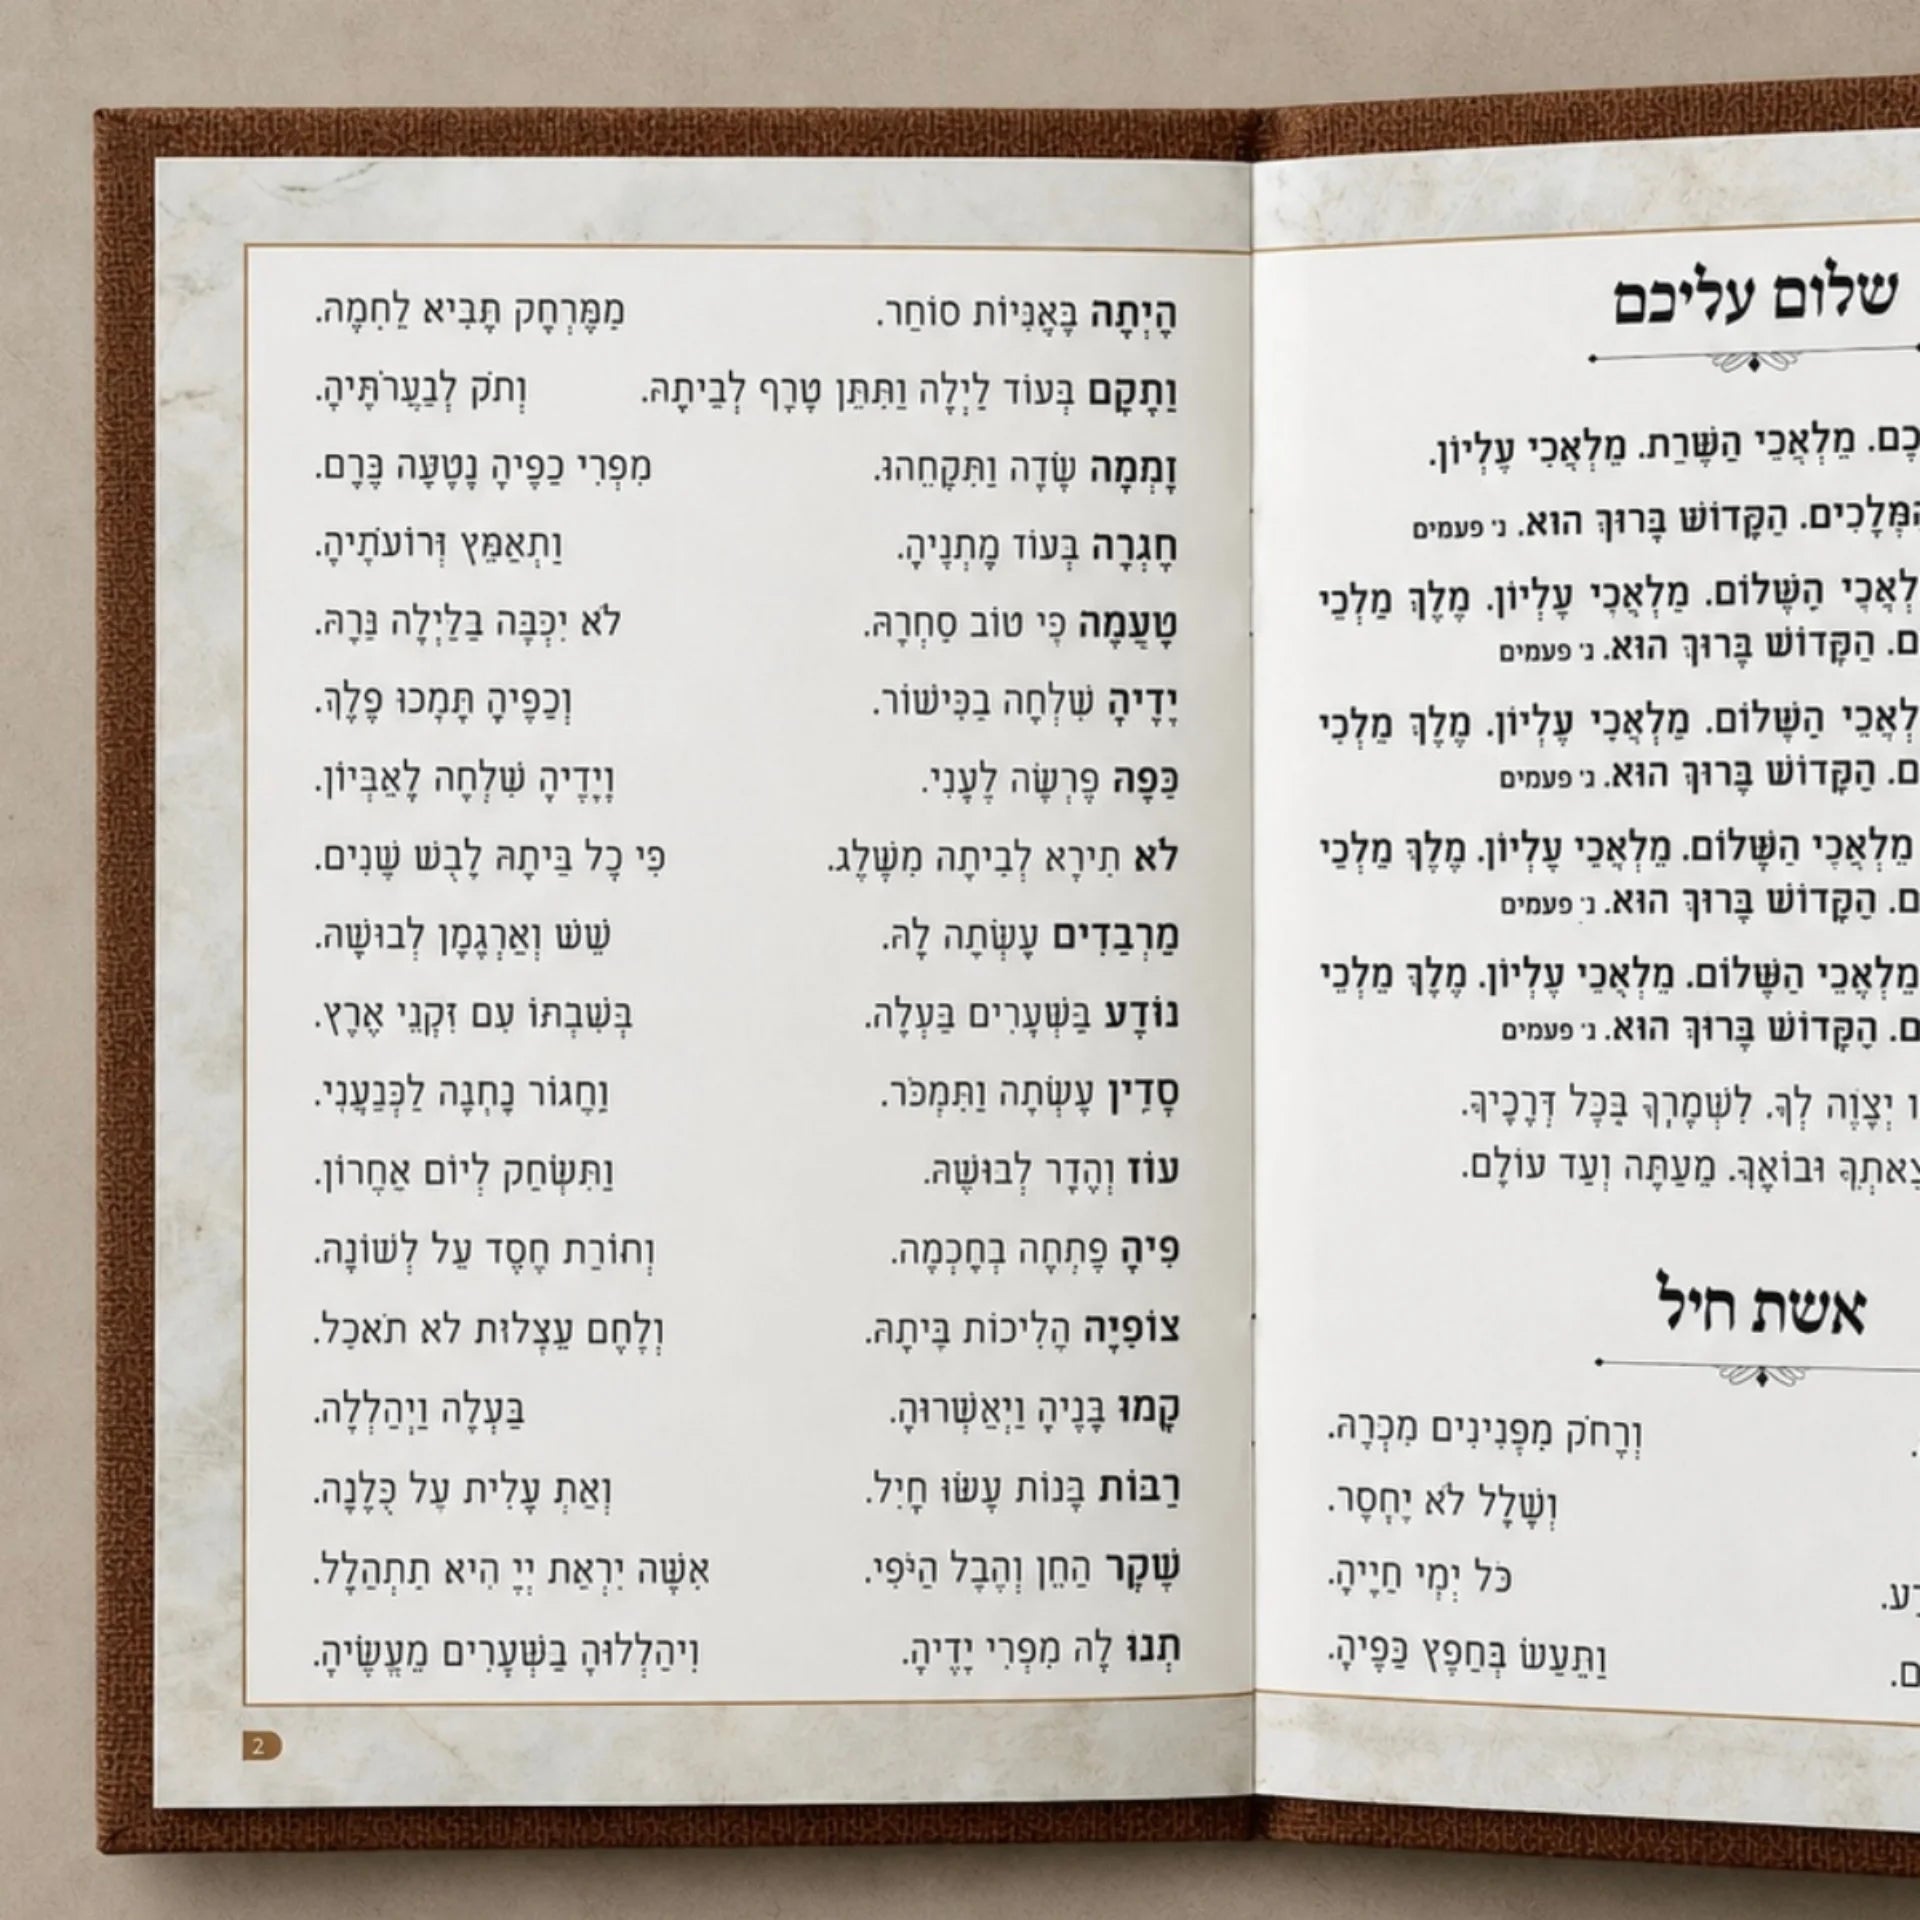 שלום עליכם
מַלְאֲכֵי הַשָּׁרֵת. מַלְאֲכֵי עֶלְיוֹן.
הַקָּדוֹשׁ בָּרוּךְ הוּא. ג׳ פעמים
הַשָּׁלוֹם. מַלְאֲכֵי עֶלְיוֹן. מֶלֶךְ מַלְכֵי
הַקָּדוֹשׁ בָּרוּךְ הוּא. ג׳ פעמים
הַשָּׁלוֹם. מַלְאֲכֵי עֶלְיוֹן. מֶלֶךְ מַלְכֵי
הַקָּדוֹשׁ בָּרוּךְ הוּא. ג׳ פעמים
מַלְאֲכֵי הַשָּׁלוֹם. מַלְאֲכֵי עֶלְיוֹן. מֶלֶךְ מַלְכֵי
הַקָּדוֹשׁ בָּרוּךְ הוּא. ג׳ פעמים
מַלְאֲכֵי הַשָּׁלוֹם. מַלְאֲכֵי עֶלְיוֹן. מֶלֶךְ מַלְכֵי
הַקָּדוֹשׁ בָּרוּךְ הוּא. ג׳ פעמים
יְצַוֶּה לָּךְ. לִשְׁמָרְךָ בְּכָל דְּרָכֶיךָ.
וּבוֹאֶךָ. מֵעַתָּה וְעַד עוֹלָם.
אשת חיל
וְרָחֹק מִפְּנִינִים מִכְרָהּ.
וְשָׁלָל לֹא יֶחְסָר.
כֹּל יְמֵי חַיֶּיהָ.
וַתַּעַשׂ בְּחֵפֶץ כַּפֶּיהָ.
הָיְתָה בָּאֳנִיּוֹת סוֹחַר. מִמֶּרְחָק תָּבִיא לַחְמָהּ.
וַתָּקָם בְּעוֹד לַיְלָה וַתִּתֵּן טֶרֶף לְבֵיתָהּ. וְחֹק לְבַעֲרֹתֶּיהָ.
זָמְמָה שָׂדֶה וַתִּקָּחֵהוּ. מִפְּרִי כַפֶּיהָ נָטְעָה כֶּרֶם.
חָגְרָה בְּעוֹד מָתְנֶיהָ. וַתְּאַמֵּץ זְרוֹעֹתֶיהָ.
טָעֲמָה כִּי טוֹב סַחְרָהּ. לֹא יִכְבֶּה בַלַּיְלָה נֵרָהּ.
יָדֶיהָ שִׁלְחָה בַכִּישׁוֹר. וְכַפֶּיהָ תָּמְכוּ פָלֶךְ.
כַּפָּהּ פָּרְשָׂה לֶעָנִי. וְיָדֶיהָ שִׁלְחָה לָאֶבְיוֹן.
לֹא תִירָא לְבֵיתָהּ מִשָּׁלֶג. כִּי כָל בֵּיתָהּ לָבֻשׁ שָׁנִים.
מַרְבַדִּים עָשְׂתָה לָּהּ. שֵׁשׁ וְאַרְגָּמָן לְבוּשָׁהּ.
נוֹדָע בַּשְּׁעָרִים בַּעְלָהּ. בְּשִׁבְתּוֹ עִם זִקְנֵי אָרֶץ.
סָדִין עָשְׂתָה וַתִּמְכֹּר. וַחֲגוֹר נָתְנָה לַכְּנַעֲנִי.
עוֹז וְהָדָר לְבוּשָׁהּ. וַתִּשְׂחַק לְיוֹם אַחֲרוֹן.
פִּיהָ פָּתְחָה בְחָכְמָה. וְתוֹרַת חֶסֶד עַל לְשׁוֹנָהּ.
צוֹפִיָּה הֲלִיכוֹת בֵּיתָהּ. וְלֶחֶם עַצְלוּת לֹא תֹאכֵל.
קָמוּ בָנֶיהָ וַיְאַשְּׁרוּהָ. בַּעְלָהּ וַיְהַלְלָהּ.
רַבּוֹת בָּנוֹת עָשׂוּ חָיִל. וְאַתְּ עָלִית עַל כֻּלָּנָה.
שֶׁקֶר הַחֵן וְהֶבֶל הַיֹּפִי. אִשָּׁה יִרְאַת יְיָ הִיא תִתְהַלָּל.
תְּנוּ לָהּ מִפְּרִי יָדֶיהָ. וִיהַלְלוּהָ בַשְּׁעָרִים מַעֲשֶׂיהָ.
2